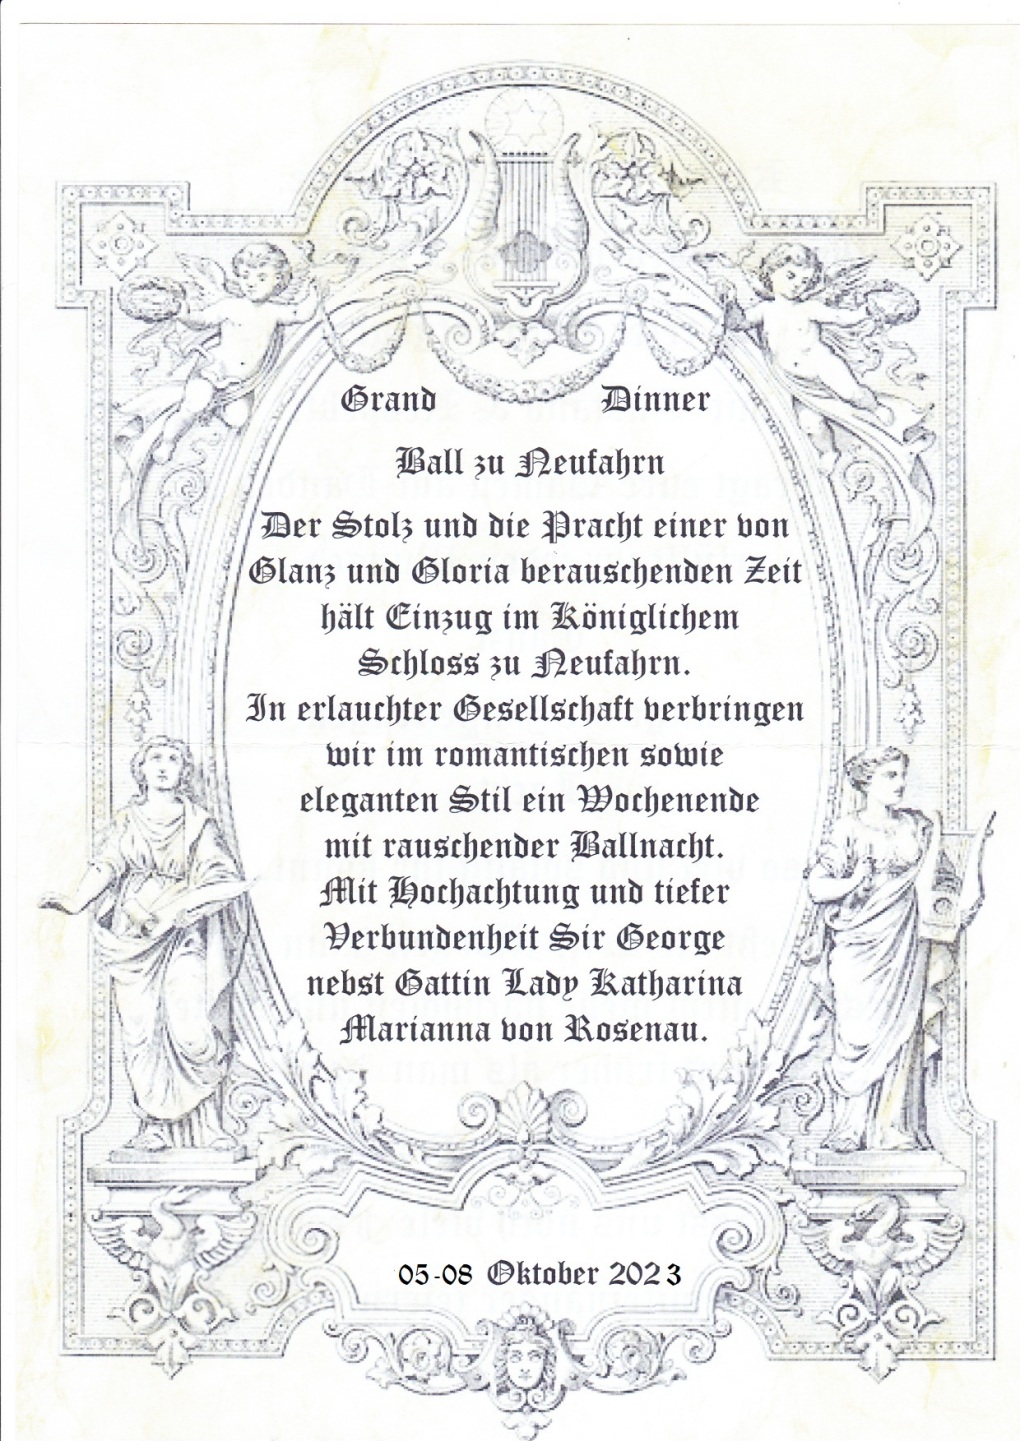 Grand Dinner
Ball zu Neufahrn
Der Stolz und die Pracht einer von
Glanz und Gloria berauschenden Zeit
hält Einzug im Königlichem
Schloss zu Neufahrn.
In erlauchter Gesellschaft verbringen
wir im romantischen sowie
eleganten Stil ein Wochenende
mit rauschender Ballnacht.
Mit Hochachtung und tiefer
Verbundenheit Sir George
nebst Gattin Lady Katharina
Marianna von Rosenau.
05-08 Oktober 2023